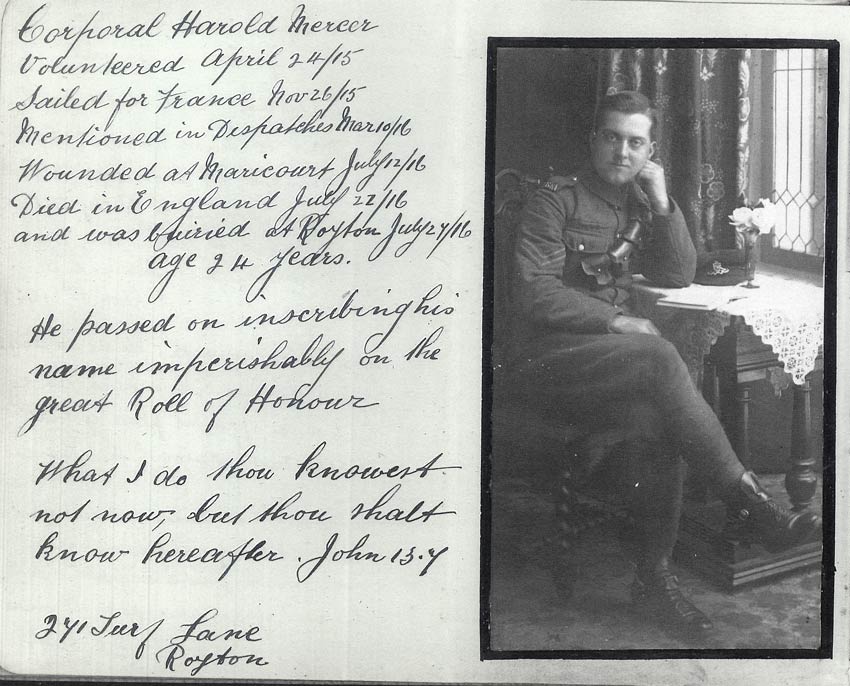 Corporal Harold Mercer
Volunteered April 24/15
Sailed for France Nov 26/15
Mentioned in Despatches Mar 10/16
Wounded at Maricourt July 12/16
Died in England July 22/16
and was buiried at Royton July 27/16
age 24 years.
He passed on inscribing his
name imperishably on the
great Roll of Honour
What I do thou knowest
not now, but thou shalt
know hereafter. John 13.7
271 Turf Lane
Royton